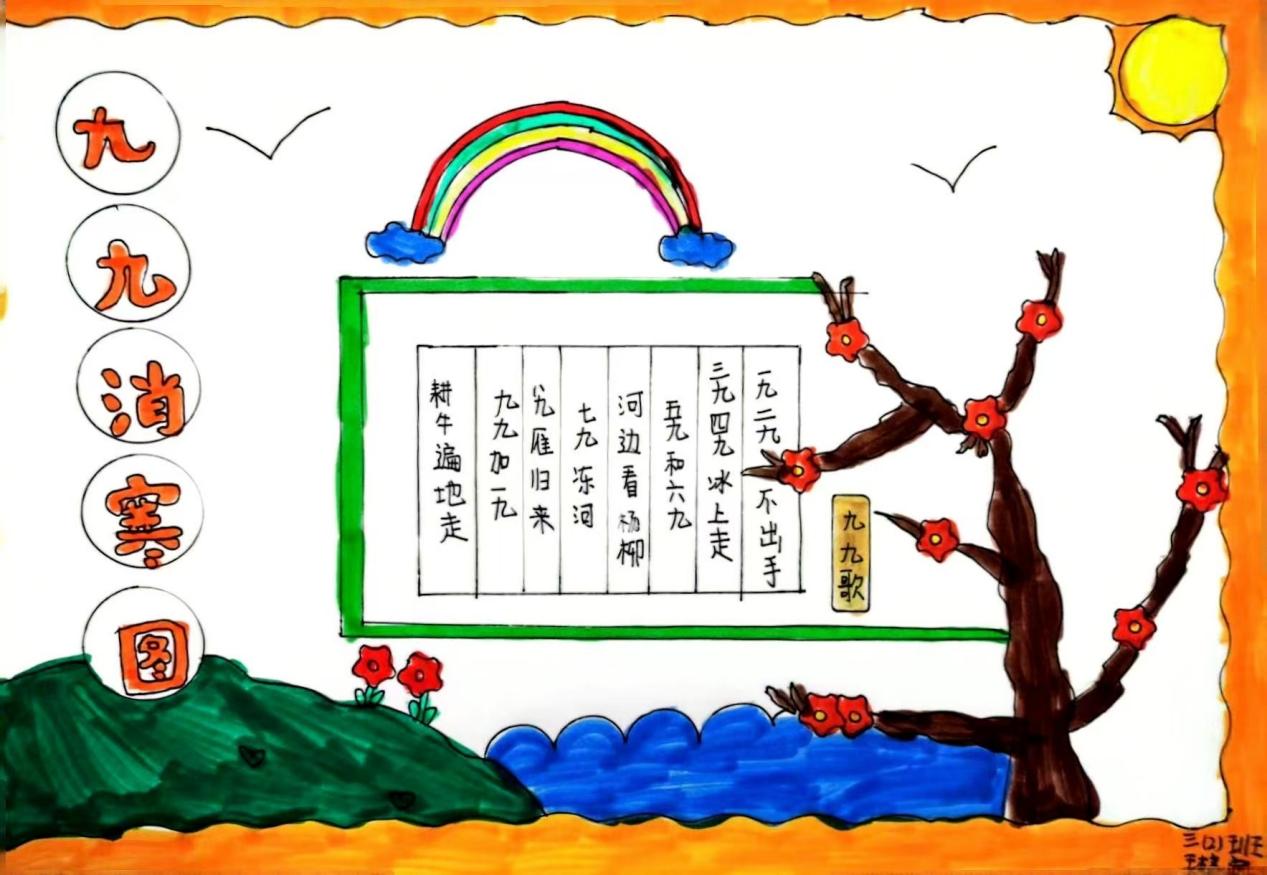 九九消寒图
九九歌
一九二九不出手
三九四九冰上走
五九和六九
河边看杨柳
七九冻河
八九雁归来
九九加一九
耕牛遍地走
三(2)班